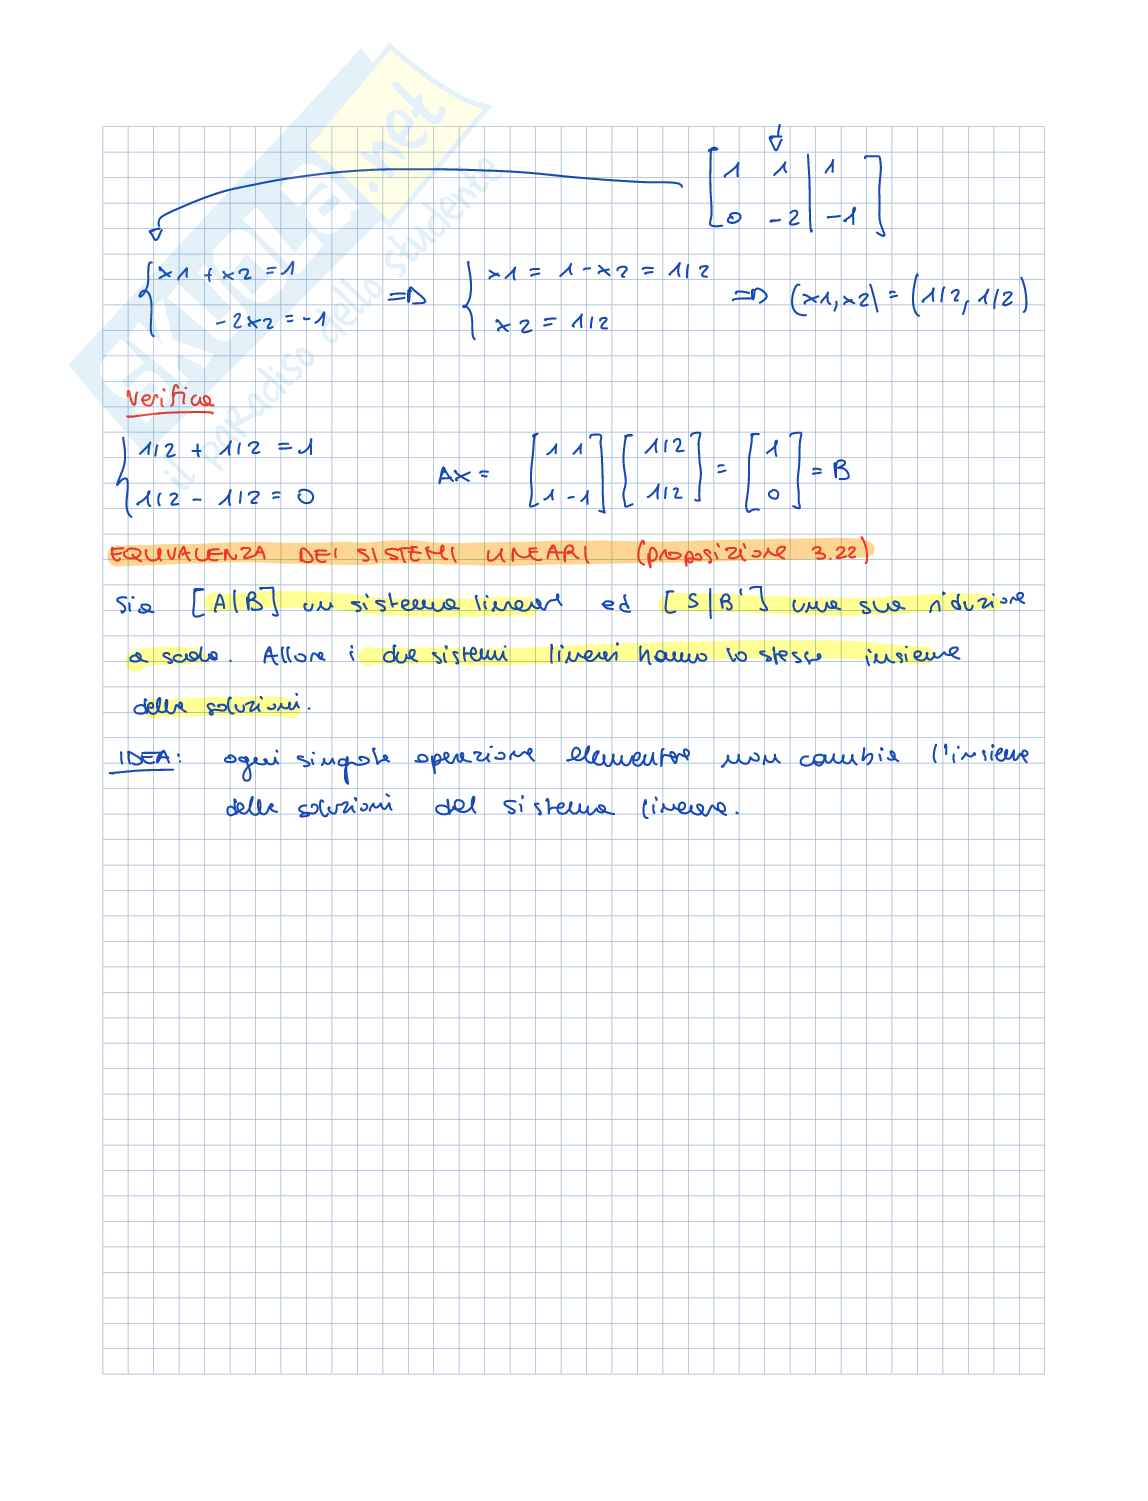 [1 1 | 1
0 -2 | -1]
{x1 + x2 = 1
-2x2 = -1
=> {x1 = 1-x2 = 1/2
x2 = 1/2
=> (x1,x2) = (1/2, 1/2)
Verifica
{1/2 + 1/2 = 1
1/2 - 1/2 = 0
AX = [1 1
1 -1] [1/2
1/2] = [1
0] = B
EQUIVALENZA DEI SISTEMI LINEARI (proposizione 3.22)
Sia [A|B] un sistema lineare ed [S|B'] una sua riduzione
a scala. Allora i due sistemi lineari hanno lo stesso insieme
delle soluzioni.
IDEA: ogni singola operazione elementare non cambia l'insieme
delle soluzioni del sistema lineare.
SKUOLA.net
il paradiso dello studente